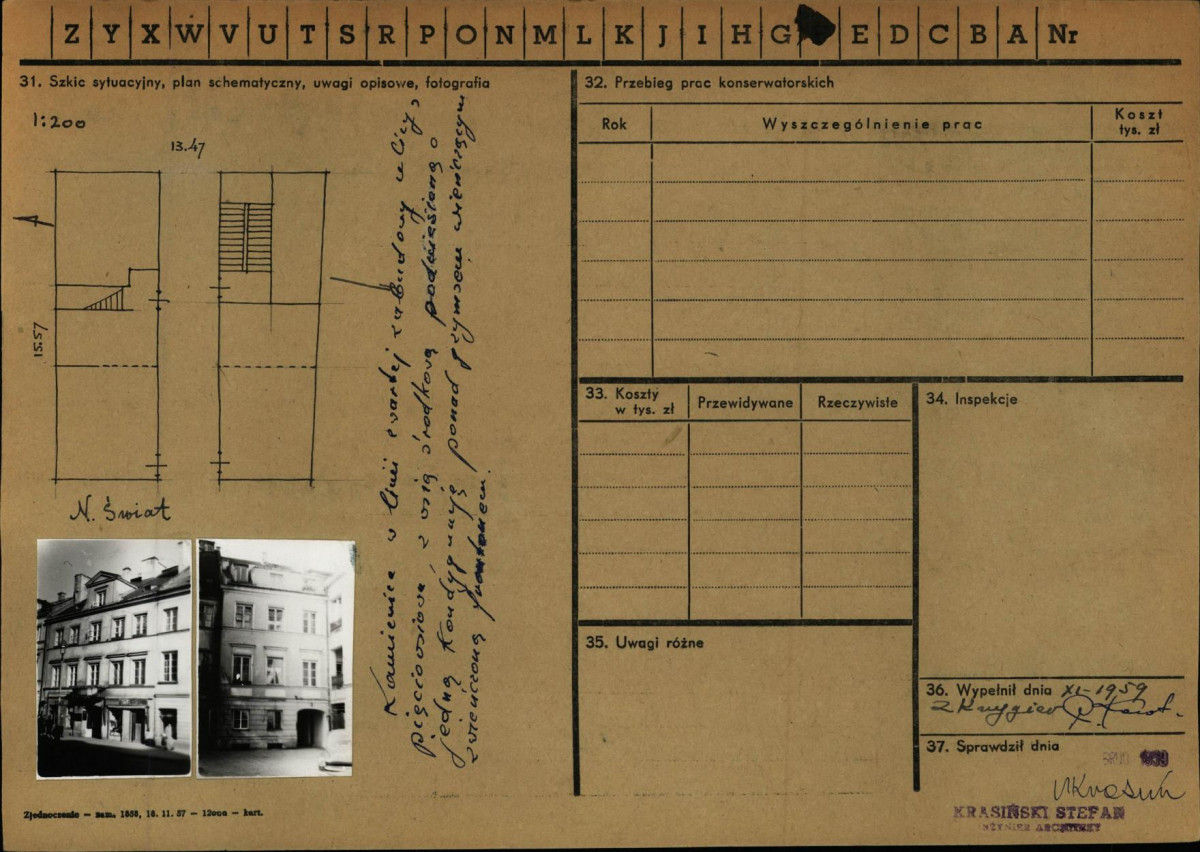 Z Y X W V U T S R P O N M L K J I H G E D C B A Nr
31. Szkic sytuacyjny, plan schematyczny, uwagi opisowe, fotografia
1:200
13.47
15.57
N. Świat
Kamienica w linii zwartej zabudowy ulicy,
pięcioosiowa, z osią środkową podniesioną o
jedną kondygnację ponad gzymsem wieńczącym
zwieńczoną frontonem.
32. Przebieg prac konserwatorskich
Rok
Wyszczególnienie prac
Koszt
tys. zł
33. Koszty
w tys. zł
Przewidywane
Rzeczywiste
34. Inspekcje
35. Uwagi różne
36. Wypełnił dnia XI-1959
37. Sprawdził dnia
KRASIŃSKI STEFAN
INŻYNIER ARCHITEKT
Zjednoczenie — zam. 1858, 16. 11. 57 — 12000 — kart.